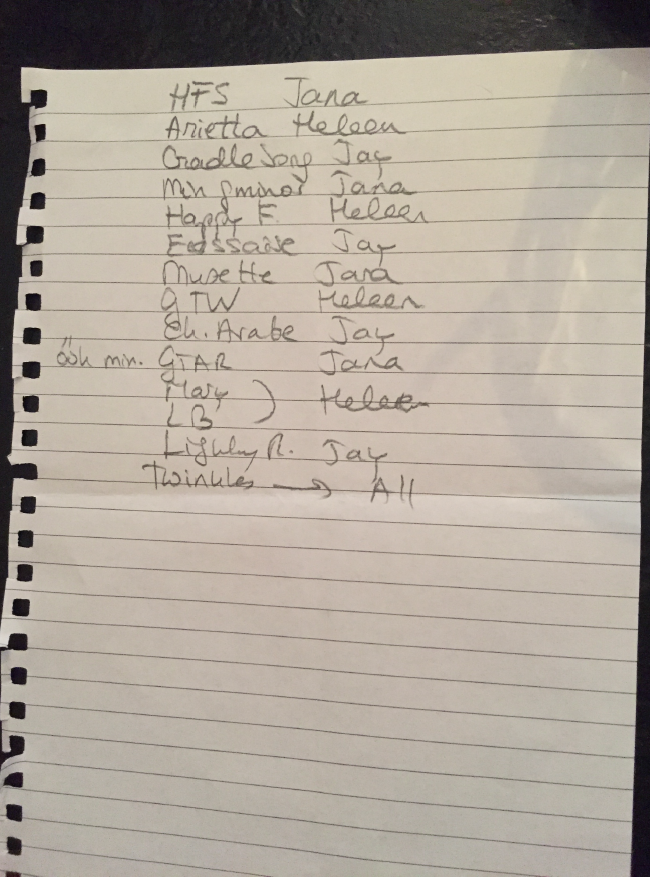 HFS Jana
Arietta Heleen
Cradle Song Jay
Min gminor Jana
Happy F. Heleen
Ecossaise Jay
Musette Jana
GTW Heleen
Ch. Arabe Jay
óók min. GTAR Jana
Mary ) Heleen
LB
Lightly R. Jay
Twinkles → All